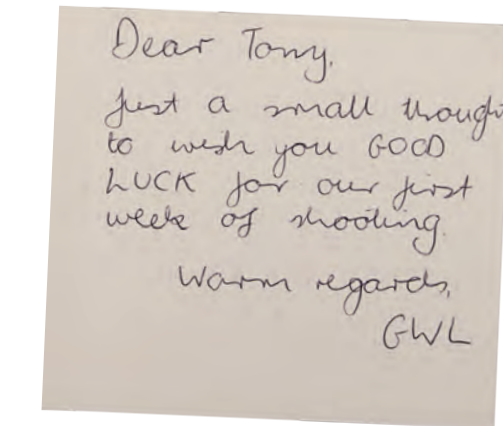 Dear Tony,
Just a small thought
to wish you GOOD
LUCK for our first
week of shooting.
Warm regards,
GWL